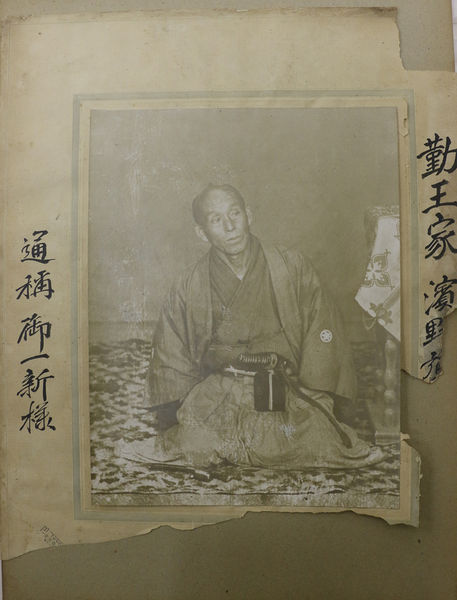 勤王家 濱野
通稱 御一新様